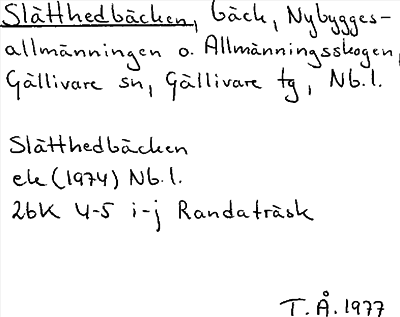 Slätthedbäcken, bäck, Nybygges-
allmänningen o. Allmänningsskogen,
Gällivare sn, Gällivare tg, Nb.l.
Slätthedbäcken
ek (1974) Nb.l.
26K 4-5 i-j Randaträsk
T.Å. 1977